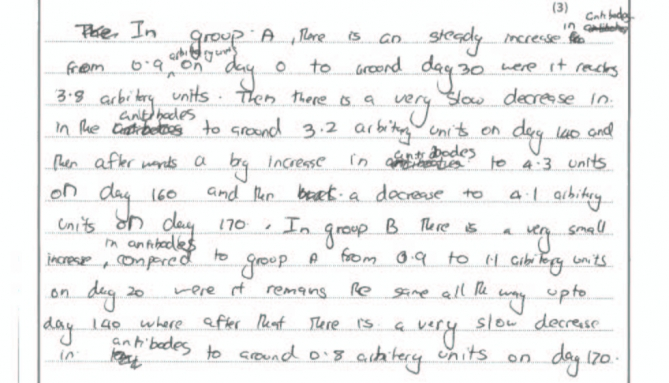 (3)
In group A, there is an steady increase in antibodies
from 0.9 arbitrary units on day 0 to around day 30 were it reaches
3.8 arbitery units. Then there is a very slow decrease in
in the antibodies to around 3.2 arbitery units on day 140 and
then after wards a big increase in antibodies to 4.3 units
on day 160 and then a decrease to 4.1 arbitery
units on day 170. In group B there is a very small
increase in antibodies, compared to group A from 0.9 to 1.1 arbitery units
on day 20 were it remains the same all the way upto
day 140 where after that there is a very slow decrease
in antibodies to around 0.8 arbitery units on day 170.